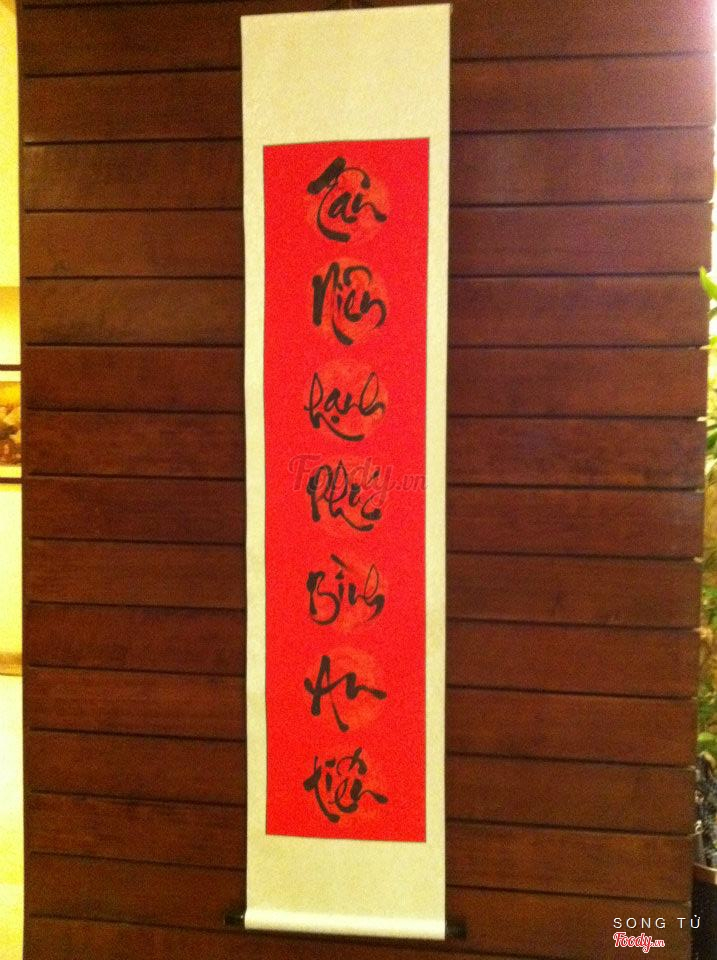 Tân
Niên
hạnh
Phúc
Bình
An
tiến
Foody.vn
SONG TỬ
Foody.vn